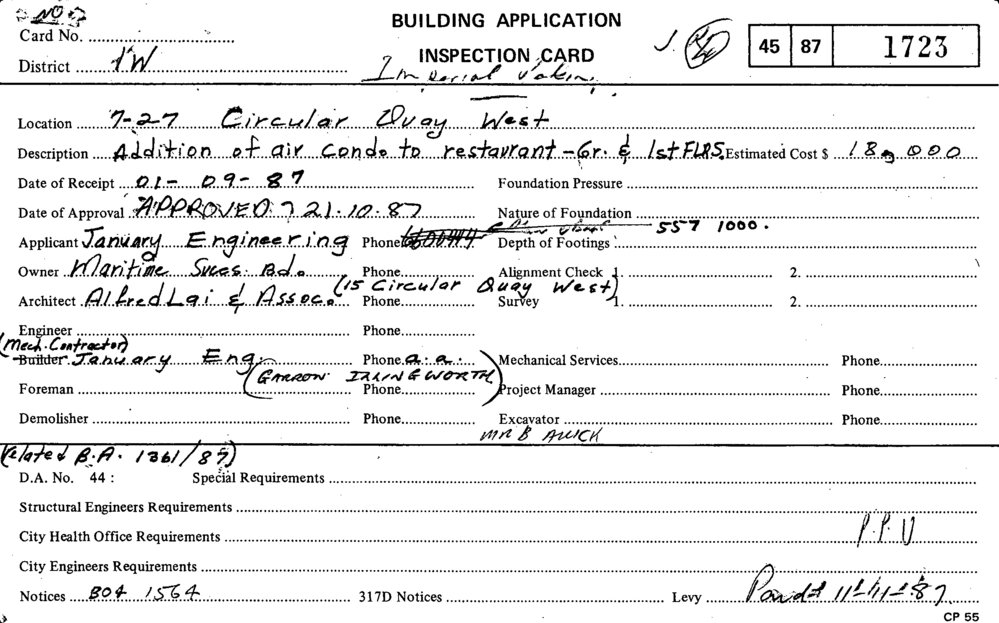 NO
BUILDING APPLICATION
Card No.
INSPECTION CARD
45 87 1723
District
Imperial
Location 7-27 Circular Quay West
Description Addition of air cond. to restaurant - Gr. & 1st FLRS. Estimated Cost $ 18,000
Date of Receipt 01-09-87 Foundation Pressure
Date of Approval APPROVED 21.10.87 Nature of Foundation
557 1000.
Applicant January Engineering Phone Depth of Footings
Owner Maritime Svces. Bd. Phone Alignment Check 1. 2.
(15 Circular Quay West)
Architect Alfred Lai & Assoc. Phone Survey 1. 2.
Engineer Phone
(Mech. Contractor)
Builder January Eng. Phone a.a. Mechanical Services Phone
(GARRON ILLINGWORTH)
Foreman Phone Project Manager Phone
Demolisher Phone Excavator Phone
MR B
(Related B.A. 1361/87)
D.A. No. 44 : Special Requirements
Structural Engineers Requirements
P.P.U
City Health Office Requirements
City Engineers Requirements
Notices BO4 1564 317D Notices Levy 11-11-87
CP 55